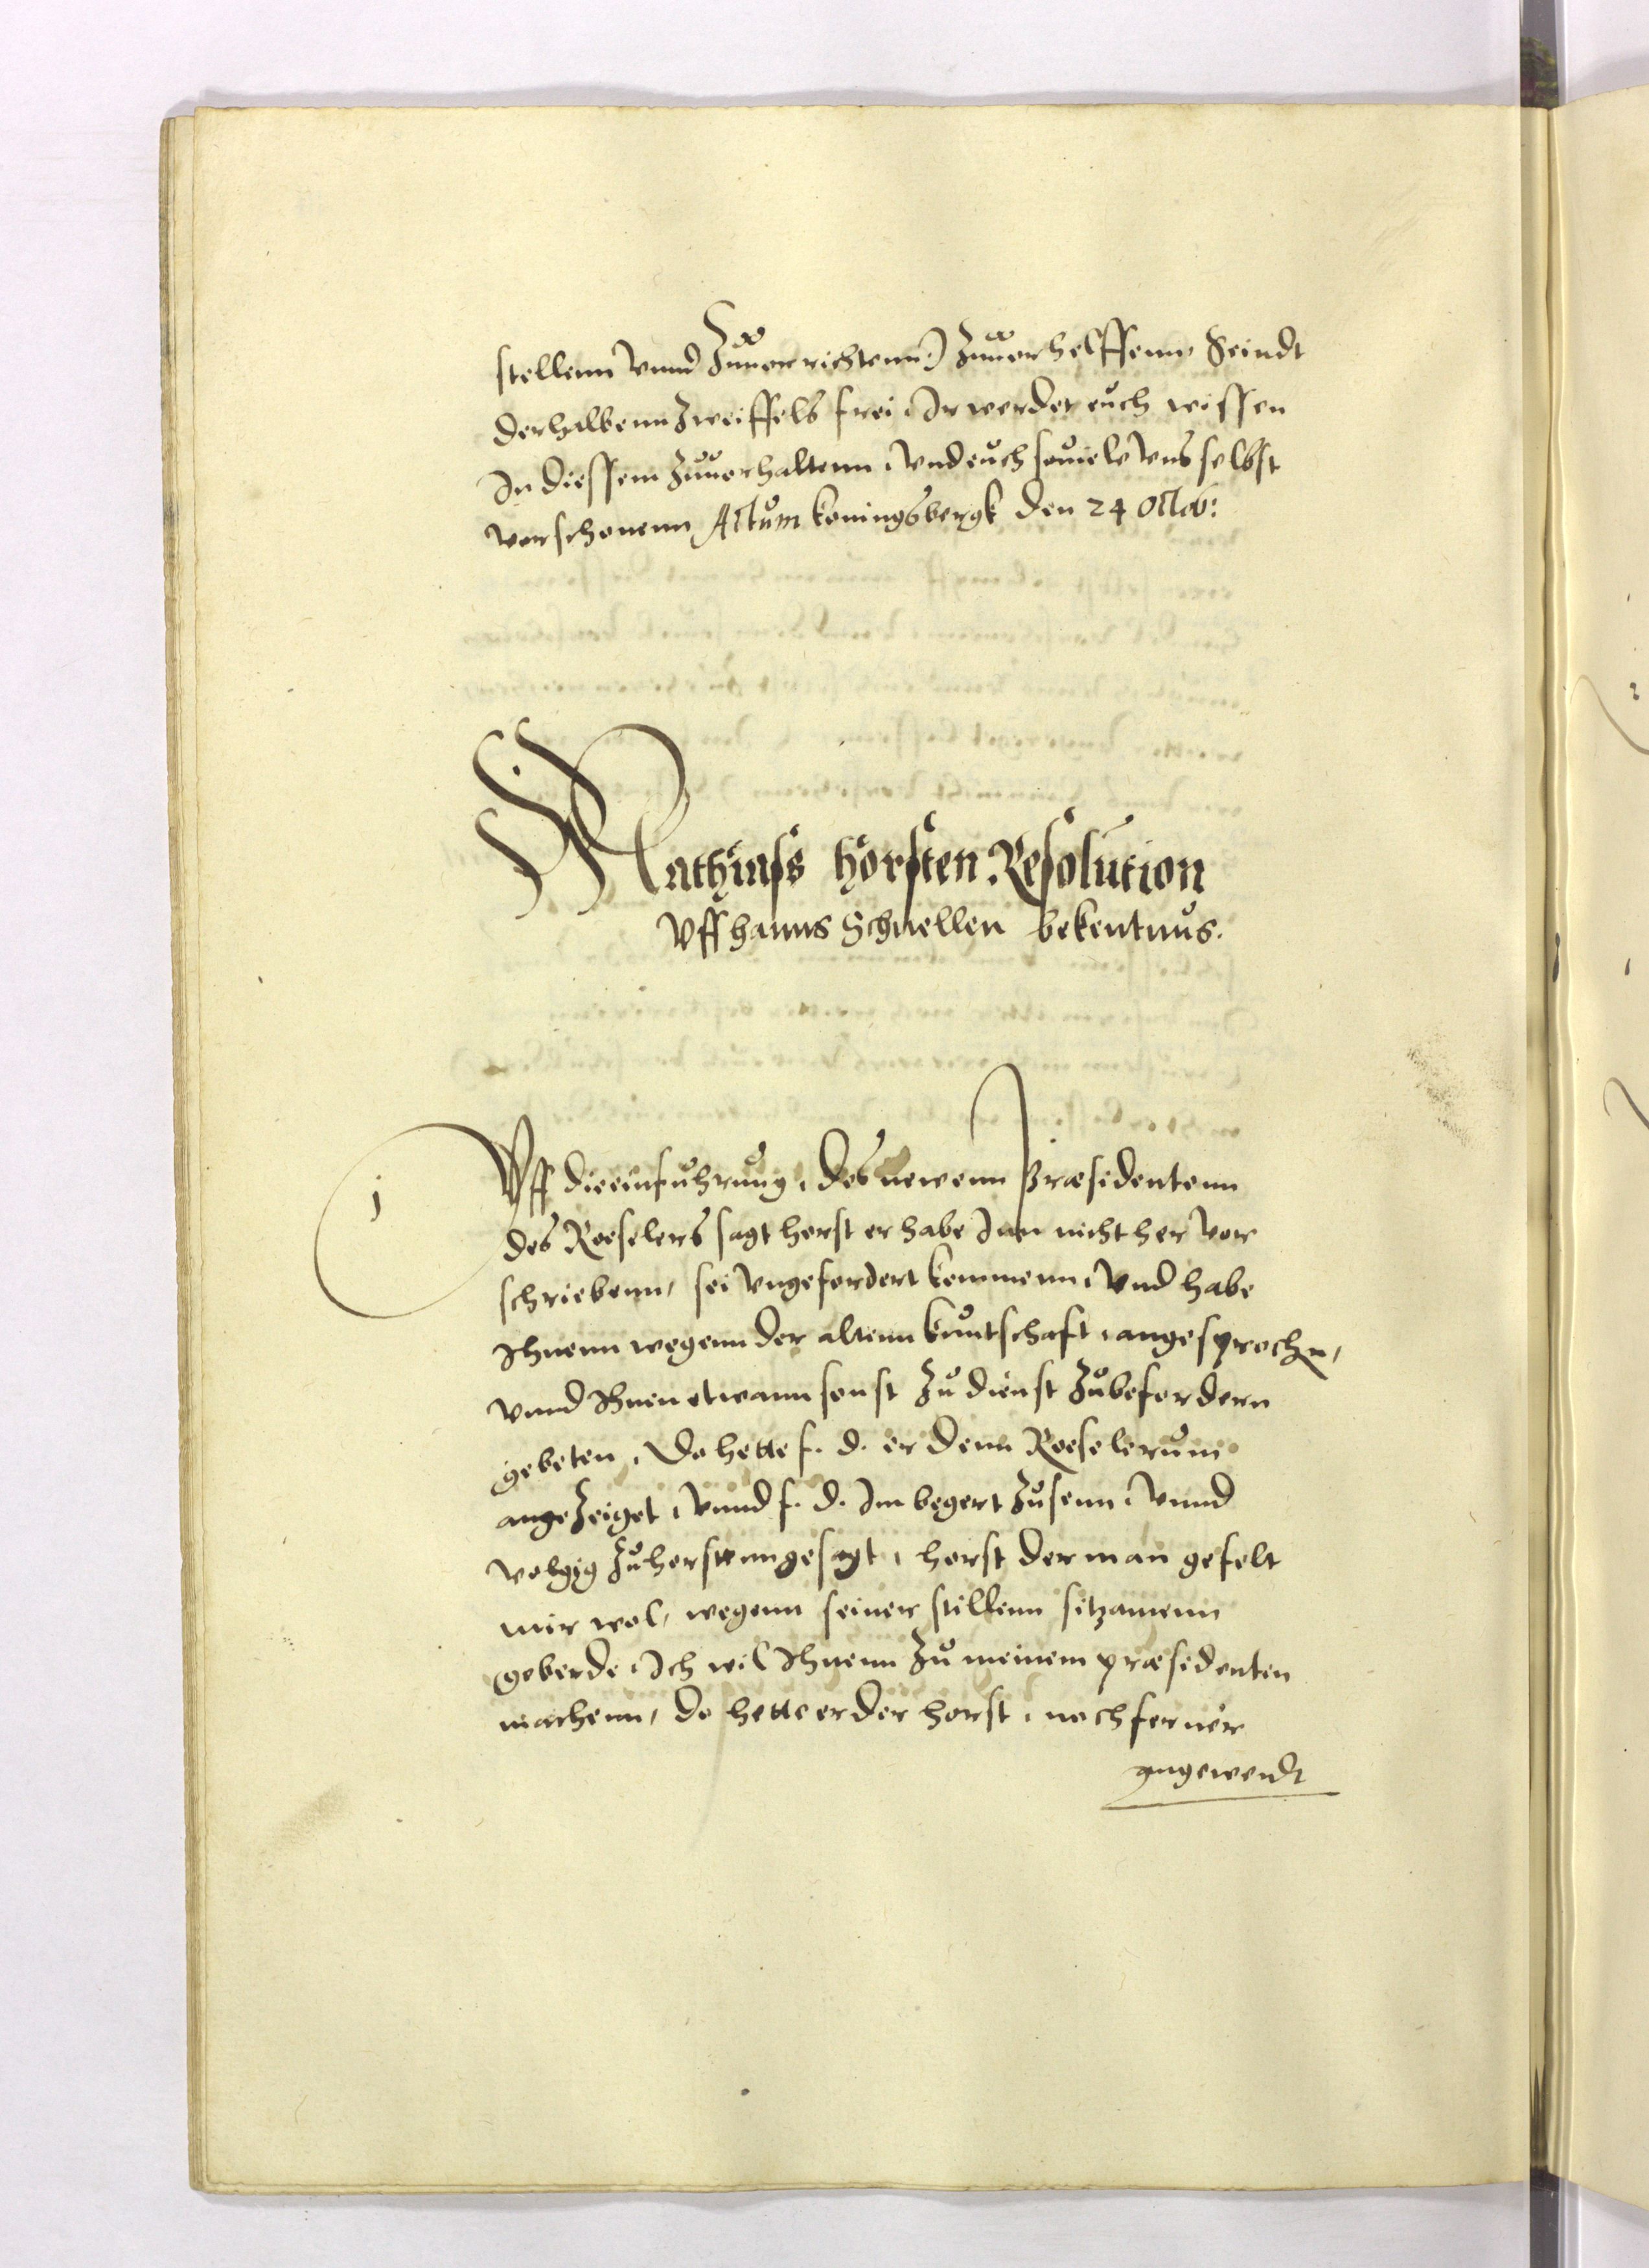 stellenn vnnd Zuuorrichtenn) Zuuorhelffenn, Seindt
derhalbenn Zweiffels frei, Ir werdet euch wissen
In diessem Zuuorhaltenn, Vnd euch souiele vns selbst
vorschonenn Actum konningsbergk den 24 Octob:
Mathiass horsten Resolution
Vff hanns Schnellen bekentnus.
1
Vff die einfuhrung, des newenn Præsidentenn
des Roeselers sagt horst er habe Inn nicht her vor
schriebenn, sei vngefordert kommenn, Vnd habe
Ihnenn wegenn der altenn kuntschaft, angesprochn,
vnnd Ihnen etwann sonst Zu dienst Zubefordern
gebeten, Do hette f. d. er denn Roeselerum
angeZeiget, vnnd f. d. Inn begert Zusenn, vnnd
Zuhorstenn gesagt, horst der man gefelt
mir wol, wegenn seiner stillenn sitzamenn
geberde, Ich wil Ihnenn Zu meinem præsidenten
machenn, do hette er der horst, noch ferner
angewendt